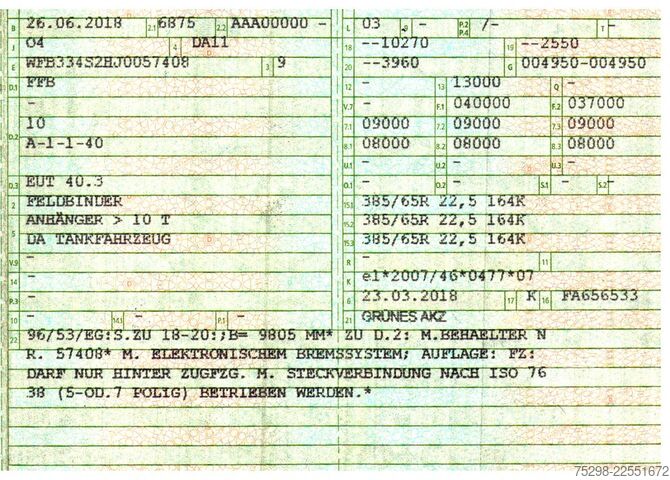 B 26.06.2018 2.1 6875 2.2 AAA00000 - L 03 9 - P.2 P.4 /- T -
J 04 4 DA11 18 --10270 19 --2550
E WFB334S2HJ0057408 3 9 20 --3960 G 004950-004950
D.1 FFB 12 - 13 13000 Q -
- V.7 - F.1 040000 F.2 037000
10 7.1 09000 7.2 09000 7.3 09000
D.2 A-1-1-40 8.1 08000 8.2 08000 8.3 08000
- U.1 - U.2 - U.3 -
D.3 EUT 40.3 O.1 - O.2 - S.1 - S.2 -
2 FELDBINDER 15.1 385/65R 22,5 164K
ANHÄNGER > 10 T 15.2 385/65R 22,5 164K
5 DA TANKFAHRZEUG 15.3 385/65R 22,5 164K
V.9 - R - 11
14 - K e1*2007/46*0477*07
P.3 - 6 23.03.2018 17 K 16 FA656533
10 - 14.1 - P.1 - 21 GRÜNES AKZ
22 96/53/EG:S.ZU 18-20:;B= 9805 MM* ZU D.2: M.BEHAELTER N
R. 57408* M. ELEKTRONISCHEM BREMSSYSTEM; AUFLAGE: FZ:
DARF NUR HINTER ZUGFZG. M. STECKVERBINDUNG NACH ISO 76
38 (5-OD.7 POLIG) BETRIEBEN WERDEN.*
75298-22551672